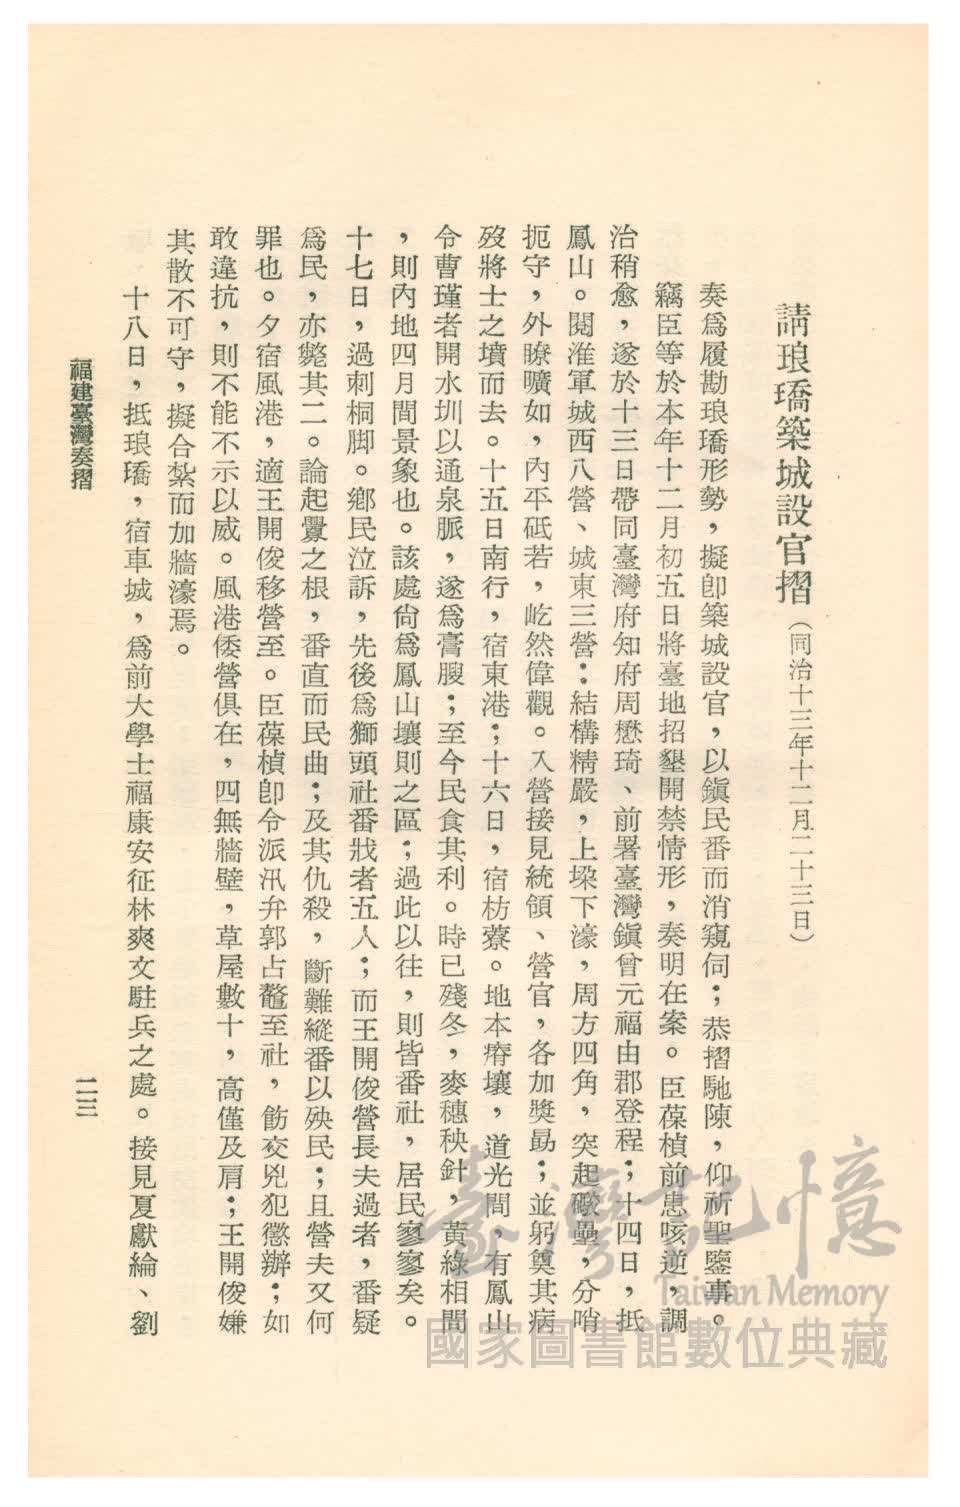 請琅𤩝築城設官摺（同治十三年十二月二十三日）
奏爲履勘琅𤩝形勢，擬卽築城設官，以鎭民番而消窺伺；恭摺馳陳，仰祈聖鑒事。
竊臣等於本年十二月初五日將臺地招墾開禁情形，奏明在案。臣葆楨前患咳逆，調
治稍愈，遂於十三日帶同臺灣府知府周懋琦、前署臺灣鎭曾元福由郡登程；十四日，抵
鳳山。閱淮軍城西八營、城東三營：結構精嚴，上垜下濠，周方四角，突起礮壘，分哨
扼守，外瞭曠如，內平砥若，屹然偉觀。入營接見統領、營官，各加獎勗；並躬奠其病
歿將士之墳而去。十五日南行，宿東港；十六日，宿枋藔。地本瘠壤，道光間，有鳳山
令曹瑾者開水圳以通泉脈，遂爲膏腴；至今民食其利。時已殘冬，麥穗秧針，黃綠相間
，則內地四月間景象也。該處尙爲鳳山壤則之區；過此以往，則皆番社，居民寥寥矣。
十七日，過刺桐脚。鄕民泣訴，先後爲獅頭社番戕者五人；而王開俊營長夫過者，番疑
爲民，亦斃其二。論起釁之根，番直而民曲；及其仇殺，斷難縱番以殃民；且營夫又何
罪也。夕宿風港，適王開俊移營至。臣葆楨卽令派汛弁郭占鼇至社，飭交兇犯懲辦；如
敢違抗，則不能不示以威。風港倭營俱在，四無牆壁，草屋數十，高僅及肩；王開俊嫌
其散不可守，擬合紮而加牆濠焉。
十八日，抵琅𤩝，宿車城，爲前大學士福康安征林爽文駐兵之處。接見夏獻綸、劉
福建臺灣奏摺
二三
臺灣記憶
Taiwan Memory
國家圖書館數位典藏